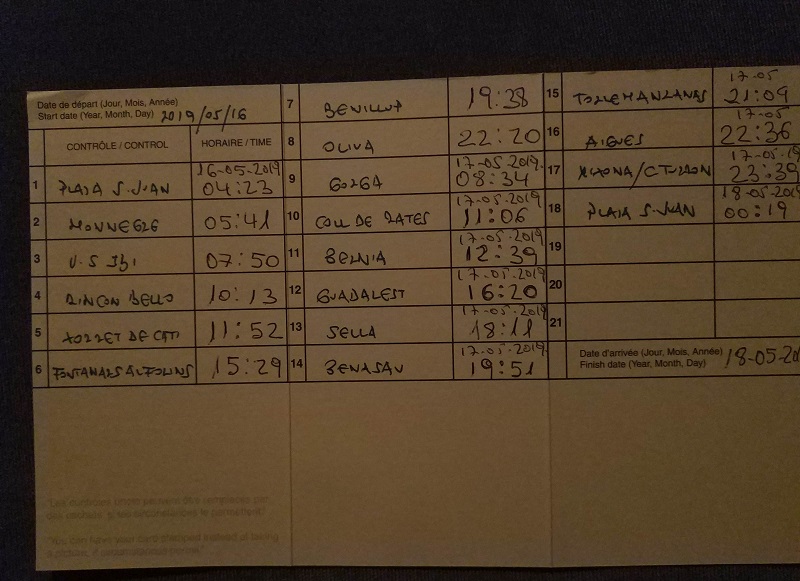 Date de départ (Jour, Mois, Année)
Start date (Year, Month, Day) 2019/05/16
CONTRÔLE / CONTROL HORAIRE / TIME
1 PLAZA S. JUAN 16-05-2019 04:23
2 MONNEGRE 05:41
3 V.S IBI 07:50
4 RINCON BELLO 10:13
5 XORRET DE CATI 11:52
6 FONTANARS ALFORINS 15:29
7 BENILLUP 19:38
8 OLIVA 22:20
9 GORGA 17-05-2019 08:34
10 COLL DE RATES 17-05-2019 11:06
11 BERNIA 17-05-2019 12:39
12 GUADALEST 17-05-2019 16:20
13 SELLA 17-05-2019 18:11
14 BENASAU 17-05-2019 19:51
15 TORREMANZANAS 17-05 21:09
16 AIGUES 17-05 22:36
17 17-05-19 23:39
18 PLAZA S. JUAN 18-05-2019 00:19
19
20
21
Date d'arrivée (Jour, Mois, Année)
Finish date (Year, Month, Day) 18-05-20
*Les contrôles libres peuvent être remplacés par
des cachets, si les circonstances le permettent!
*You can have your card stamped instead of taking
a picture, if circumstances permit!